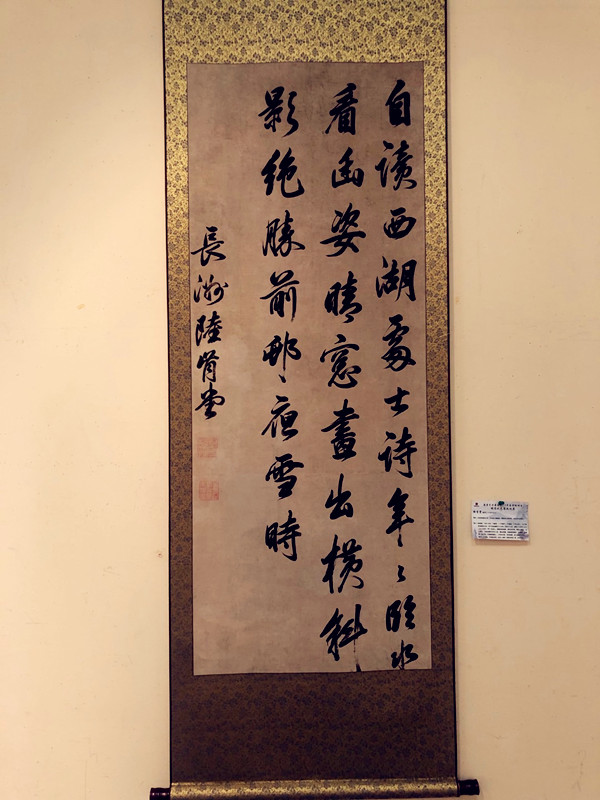 自讀西湖處士詩年〻臨水
看幽姿晴窓畫出橫斜
影絶勝前邨夜雪時
長洲陸肯堂